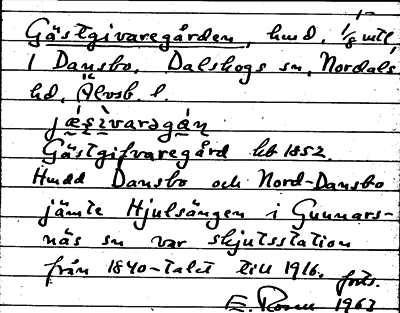 Gästgivaregården, hmd, 1/8 mtl
i Dansbo, Dalskogs sn, Nordals
hd, Älvsb. l.
Gästgifvaregård kb 1852.
Hmdd Dansbo och Nord-Dansbo
jämte Hjulsängen i Gunnars-
näs sn var skjutsstation
från 1840-talet till 1916.
forts.
E. Rosen 1963